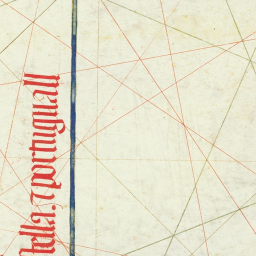 tella. ⁊portuguall